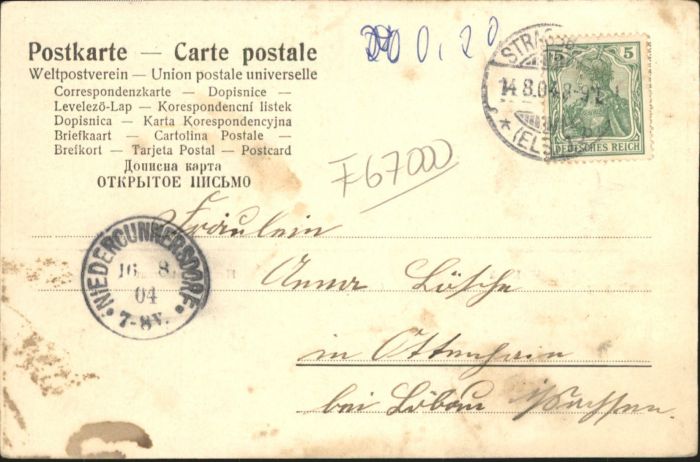 Postkarte — Carte postale
Weltpostverein — Union postale universelle
Correspondenzkarte — Dopisnice
Levelező-Lap — Korespondencní listek
Dopisnica — Karta Korespondencyjna
Briefkaart — Cartolina Postale —
Brefkort — Tarjeta Postal — Postcard
Дописна карта
ОТКРЫТОЕ ПИСЬМО
0,20
STRASSB
14.8.04.8-9
(ELS
5
DEUTSCHES REICH
F67000
NIEDERCUNNERSDORF
16. 8.
04
7-8V.
Fräulein
Anna Lösche
in Ottenhain
bei Löbau i/Sachsen.